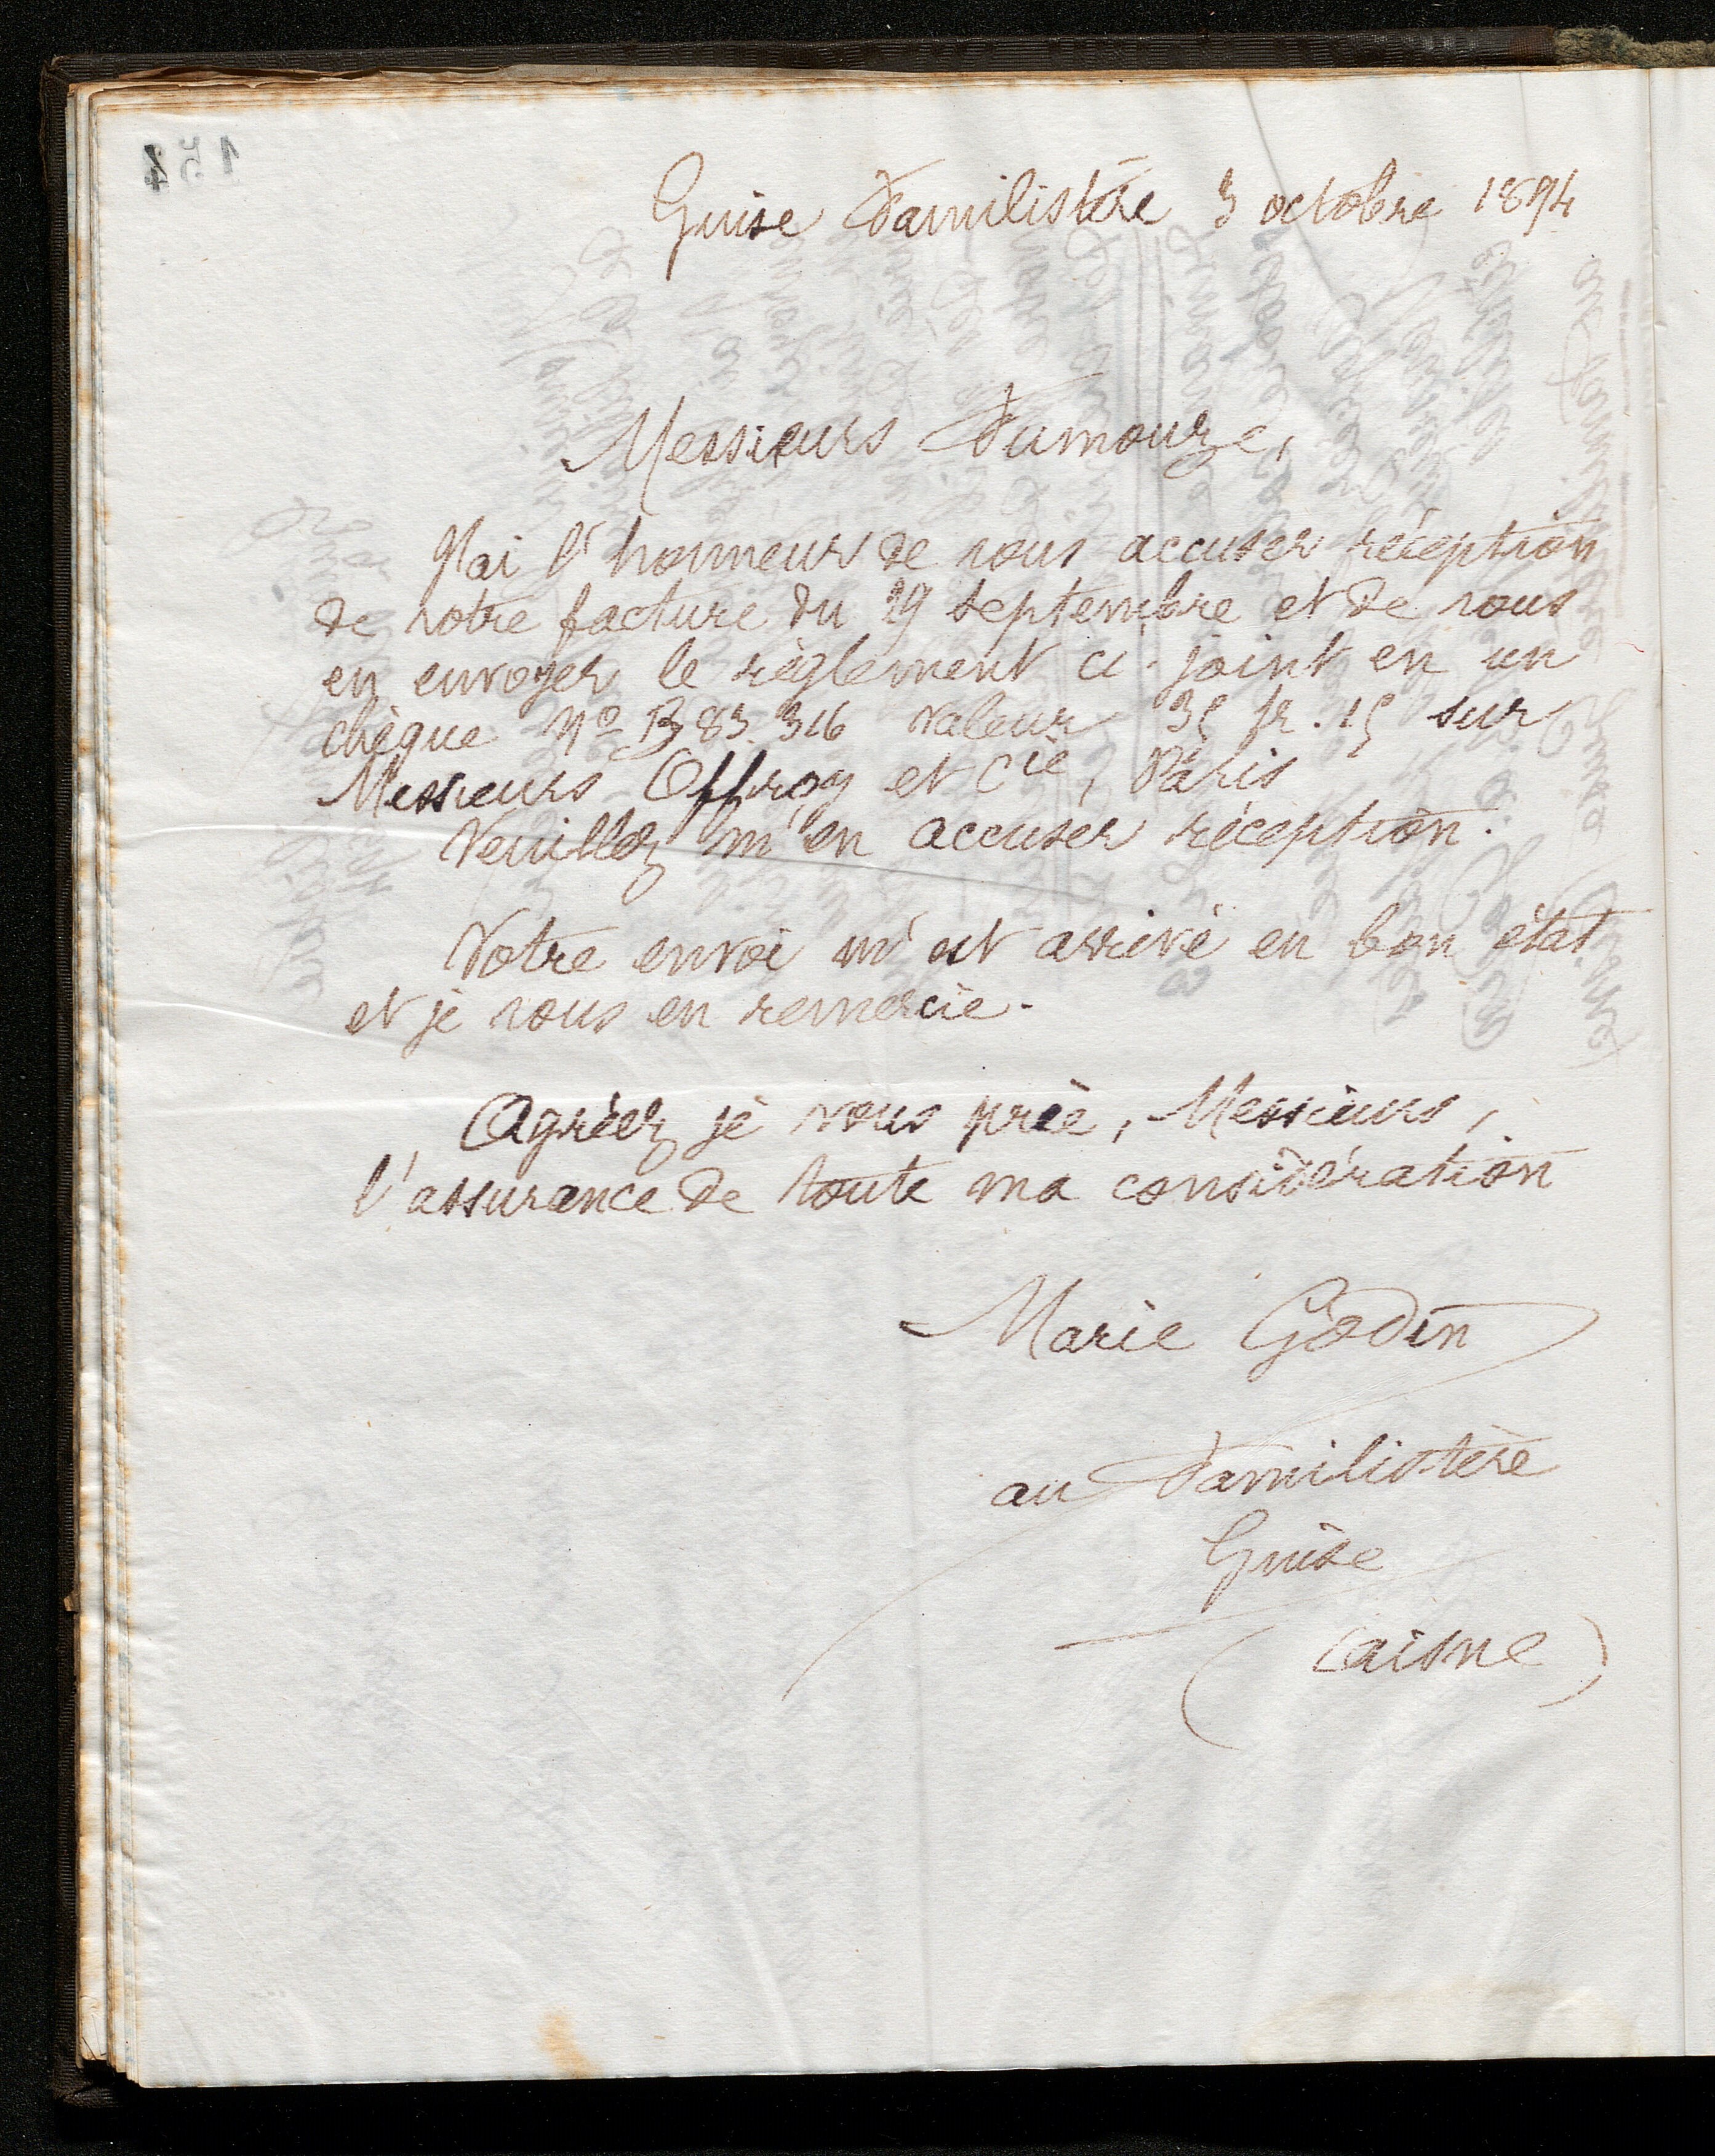 154
Guise Familistère 3 octobre 1894
Messieurs Fumouze,
J'ai l'honneur de vous accuser réception
de votre facture du 29 septembre et de vous
en envoyer le règlement ci-joint en un
chèque Nº B 83.316 valeur 35 fr. 15 sur
Messieurs Offroy et Cie, Paris
Veuillez m'en accuser réception.
Votre envoi m'est arrivé en bon état
et je vous en remercie.
Agréez, je vous prie, Messieurs,
l'assurance de toute ma considération
Marie Godin
au Familistère
Guise
(Aisne)